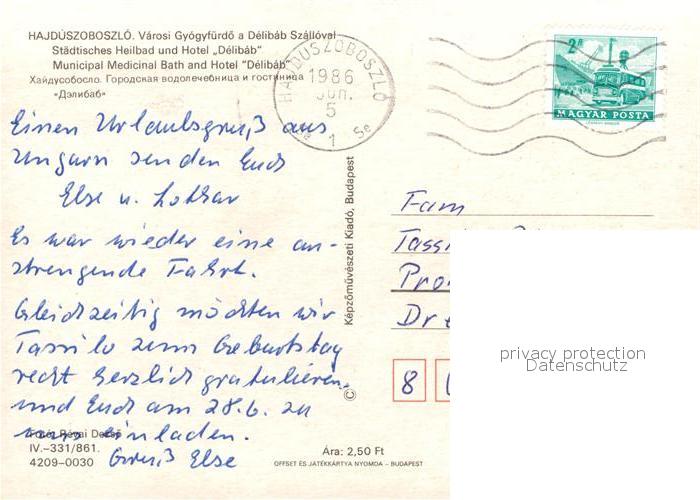 HAJDÚSZOBOSZLÓ. Városi Gyógyfürdő a Délibáb Szállóval
Städtisches Heilbad und Hotel „Délibáb"
Municipal Medicinal Bath and Hotel "Délibáb"
Хайдусобосло. Городская водолечебница и гостиница
«Дэлибаб»
HAJDÚSZOBOSZLÓ
1986
JÚN.
5
1
2 Ft
MAGYAR POSTA
Einen Urlaubsgruß aus
Ungarn senden Euch
Else u. Lothar
Es war wieder eine an-
strengende Fahrt.
Gleichzeitig möchten wir
Tassilo zum Geburtstag
recht herzlich gratulieren
und Euch am 28.6. zu
uns einladen.
Gruß Else
Képzőművészeti Kiadó, Budapest
©
Fam
Tass
Pro
Dre
8
Fotó: Révai Dezső
IV.–331/861.
4209–0030
Ára: 2,50 Ft
OFFSET ÉS JÁTÉKKÁRTYA NYOMDA – BUDAPEST
privacy protection
Datenschutz